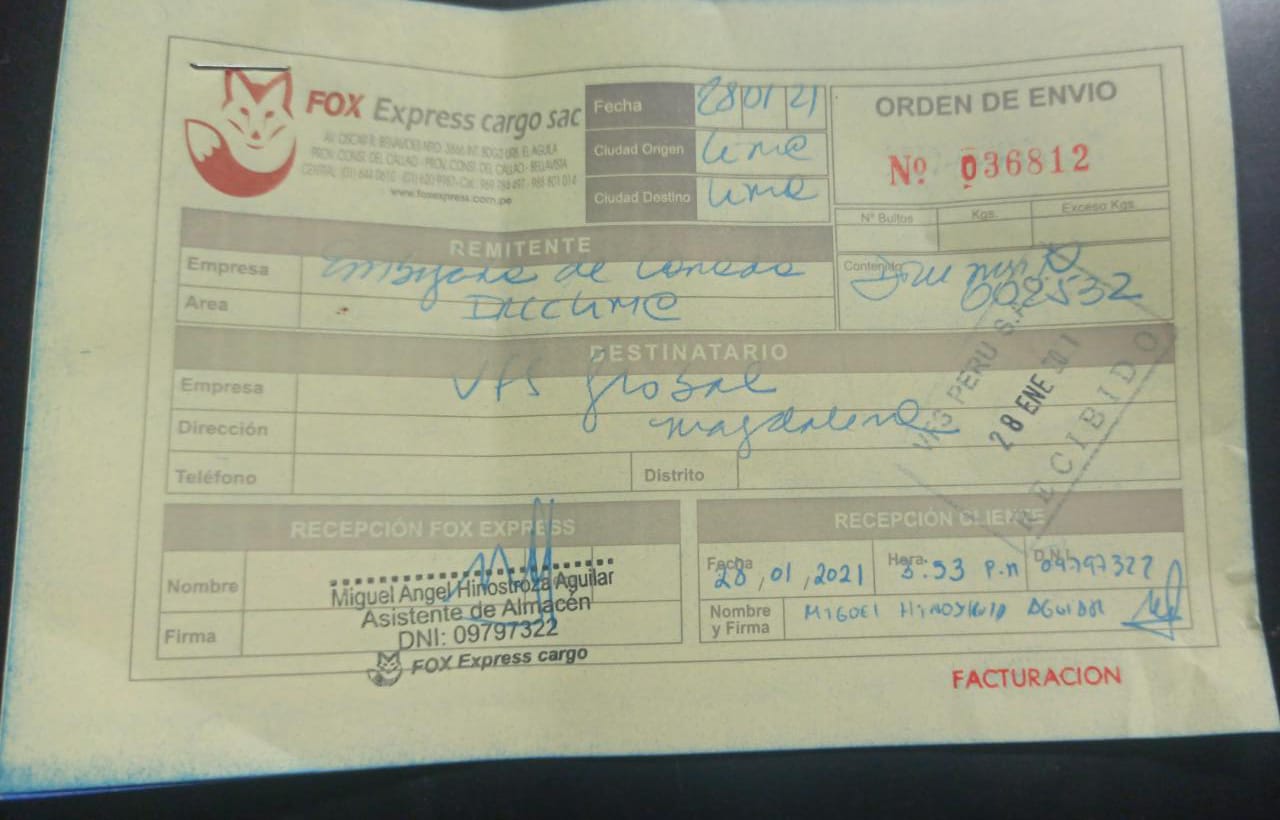 FOX Express cargo sac
AV. OSCAR R. BENAVIDES NRO. 3866 INT. URB. EL AGUILA
PROV. CONST. DEL CALLAO - PROV. CONST. DEL CALLAO - BELLAVISTA
CENTRAL: (01)
www.foxexpress.com.pe
Fecha 28 01 21
Ciudad Origen Lima
Ciudad Destino Lima
ORDEN DE ENVIO
Nº 036812
Nº Bultos Kgs. Exceso Kgs.
Contenido
002532
REMITENTE
Empresa Embajada de Canada
Area
DESTINATARIO
Empresa VFS Global
Dirección Magdalena
Teléfono Distrito
VFS PERU S.
28 ENE
RECIBIDO
RECEPCIÓN FOX EXPRESS
Nombre
Firma
Miguel Angel Hinostroza Aguilar
Asistente de Almacén
DNI: 09797322
FOX Express cargo
RECEPCIÓN CLIENTE
Fecha 28,01,2021 Hora: 3:53 P.n D.N.I. 09797322
Nombre y Firma MIGUEL HINOSTROZA AGUILAR
FACTURACION